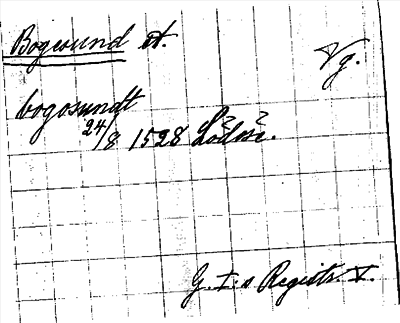 Bogesund st.
Vg.
bogosundt
24/8 1528 Lödese.
G. I:s Registr. V.